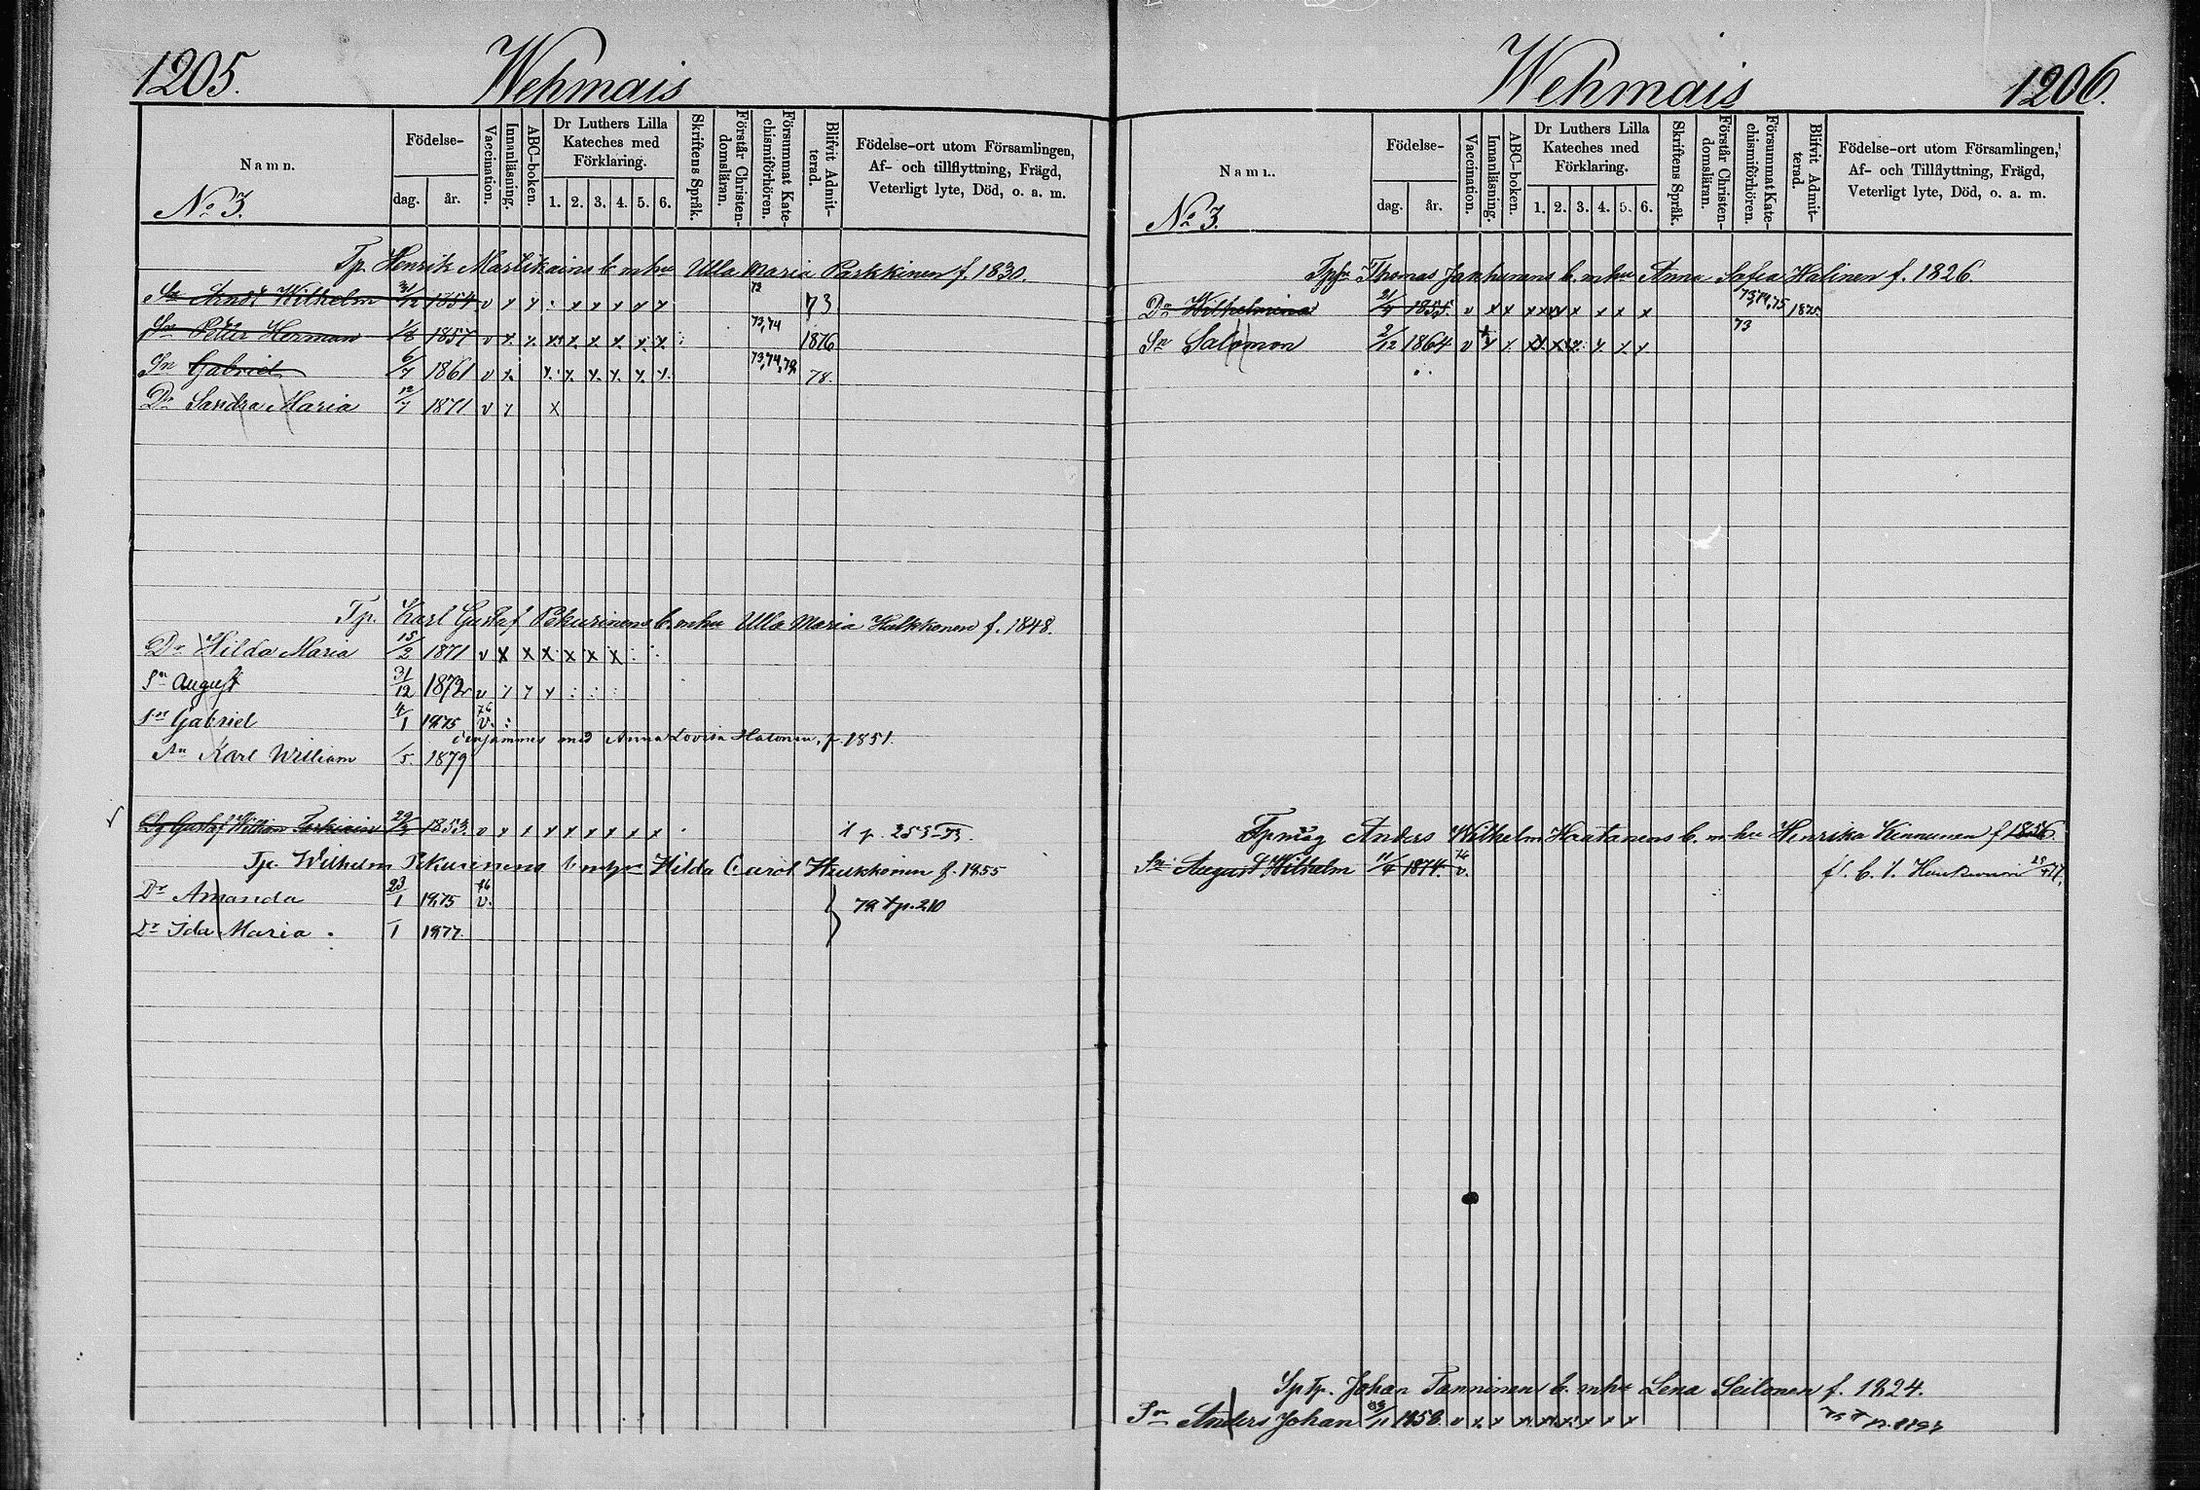 1205. Wehmais
Namn.
No 3.
Födelse-
dag. år.
Vaccination.
Innanläsning.
ABC-boken.
Dr Luthers Lilla
Kateches med
Förklaring.
1. 2. 3. 4. 5. 6.
Skriftens Språk.
Förstår Christen-
domsläran.
Försummat Kate-
chismiförhören.
Blifvit Admit-
terad.
Födelse-ort utom Församlingen,
Af- och tillflyttning, Frägd,
Veterligt lyte, Död, o. a. m.
Tp. Henrik Martikains b. m hu Ulla Maria Parkkinen f. 1830.
Sn Arndt Wilhelm 31/12 1854 v x x x x x x x 73 73
Sn Petter Herman 1/8 1857 v x x x x x x x x 73,74 1876
Sn Gabriel 6/7 1861 v x x x x x x x 73,74,78 78.
Dr Sandra Maria 12/7 1871 v x x
Tp. Karl Gustaf Pekurinens b. m hu Ulla Maria Hulkkonen f. 1848.
Dr Hilda Maria 15/2 1871 v x x x x x x
Sn August 31/12 1872 v x x x
Sn Gabriel 4/1 1875 76 v.
densammes med Anna Lovisa Hatonen, f. 1851.
Sn Karl William 1/5 1879
Gustaf William 1853. v x x x x x x x x p. 253
Tp. Wilhelm Pekurinens Hilda Carol. f. 1855
Dr Amanda 23/1 1875 76 v. p. 210
Dr Ida Maria 1 1877.
Wehmais 1206.
Namn.
No 3.
Födelse-
dag. år.
Vaccination.
Innanläsning.
ABC-boken.
Dr Luthers Lilla
Kateches med
Förklaring.
1. 2. 3. 4. 5. 6.
Skriftens Språk.
Förstår Christen-
domsläran.
Försummat Kate-
chismiförhören.
Blifvit Admit-
terad.
Födelse-ort utom Församlingen,
Af- och Tillflyttning, Frägd,
Veterligt lyte, Död, o. a. m.
Thomas Janhunens b. m hu Anna Sofia Halinen f. 1826.
Dr Wilhelmina 1855. v x x x x x x x x 73,74,75 1875.
Sn Salomon 2/12 1864 v x x x x x x x x 73
Anders Wilhelm Hautanens b. m hu Henrika Kinnunen f. 1856.
Sn August Wilhelm 11/4 1874. 76 v.
Johan Tanninens b. m hu Lena Seilonen f. 1824.
Sn Anders Johan 1858. v x x x x x x x x